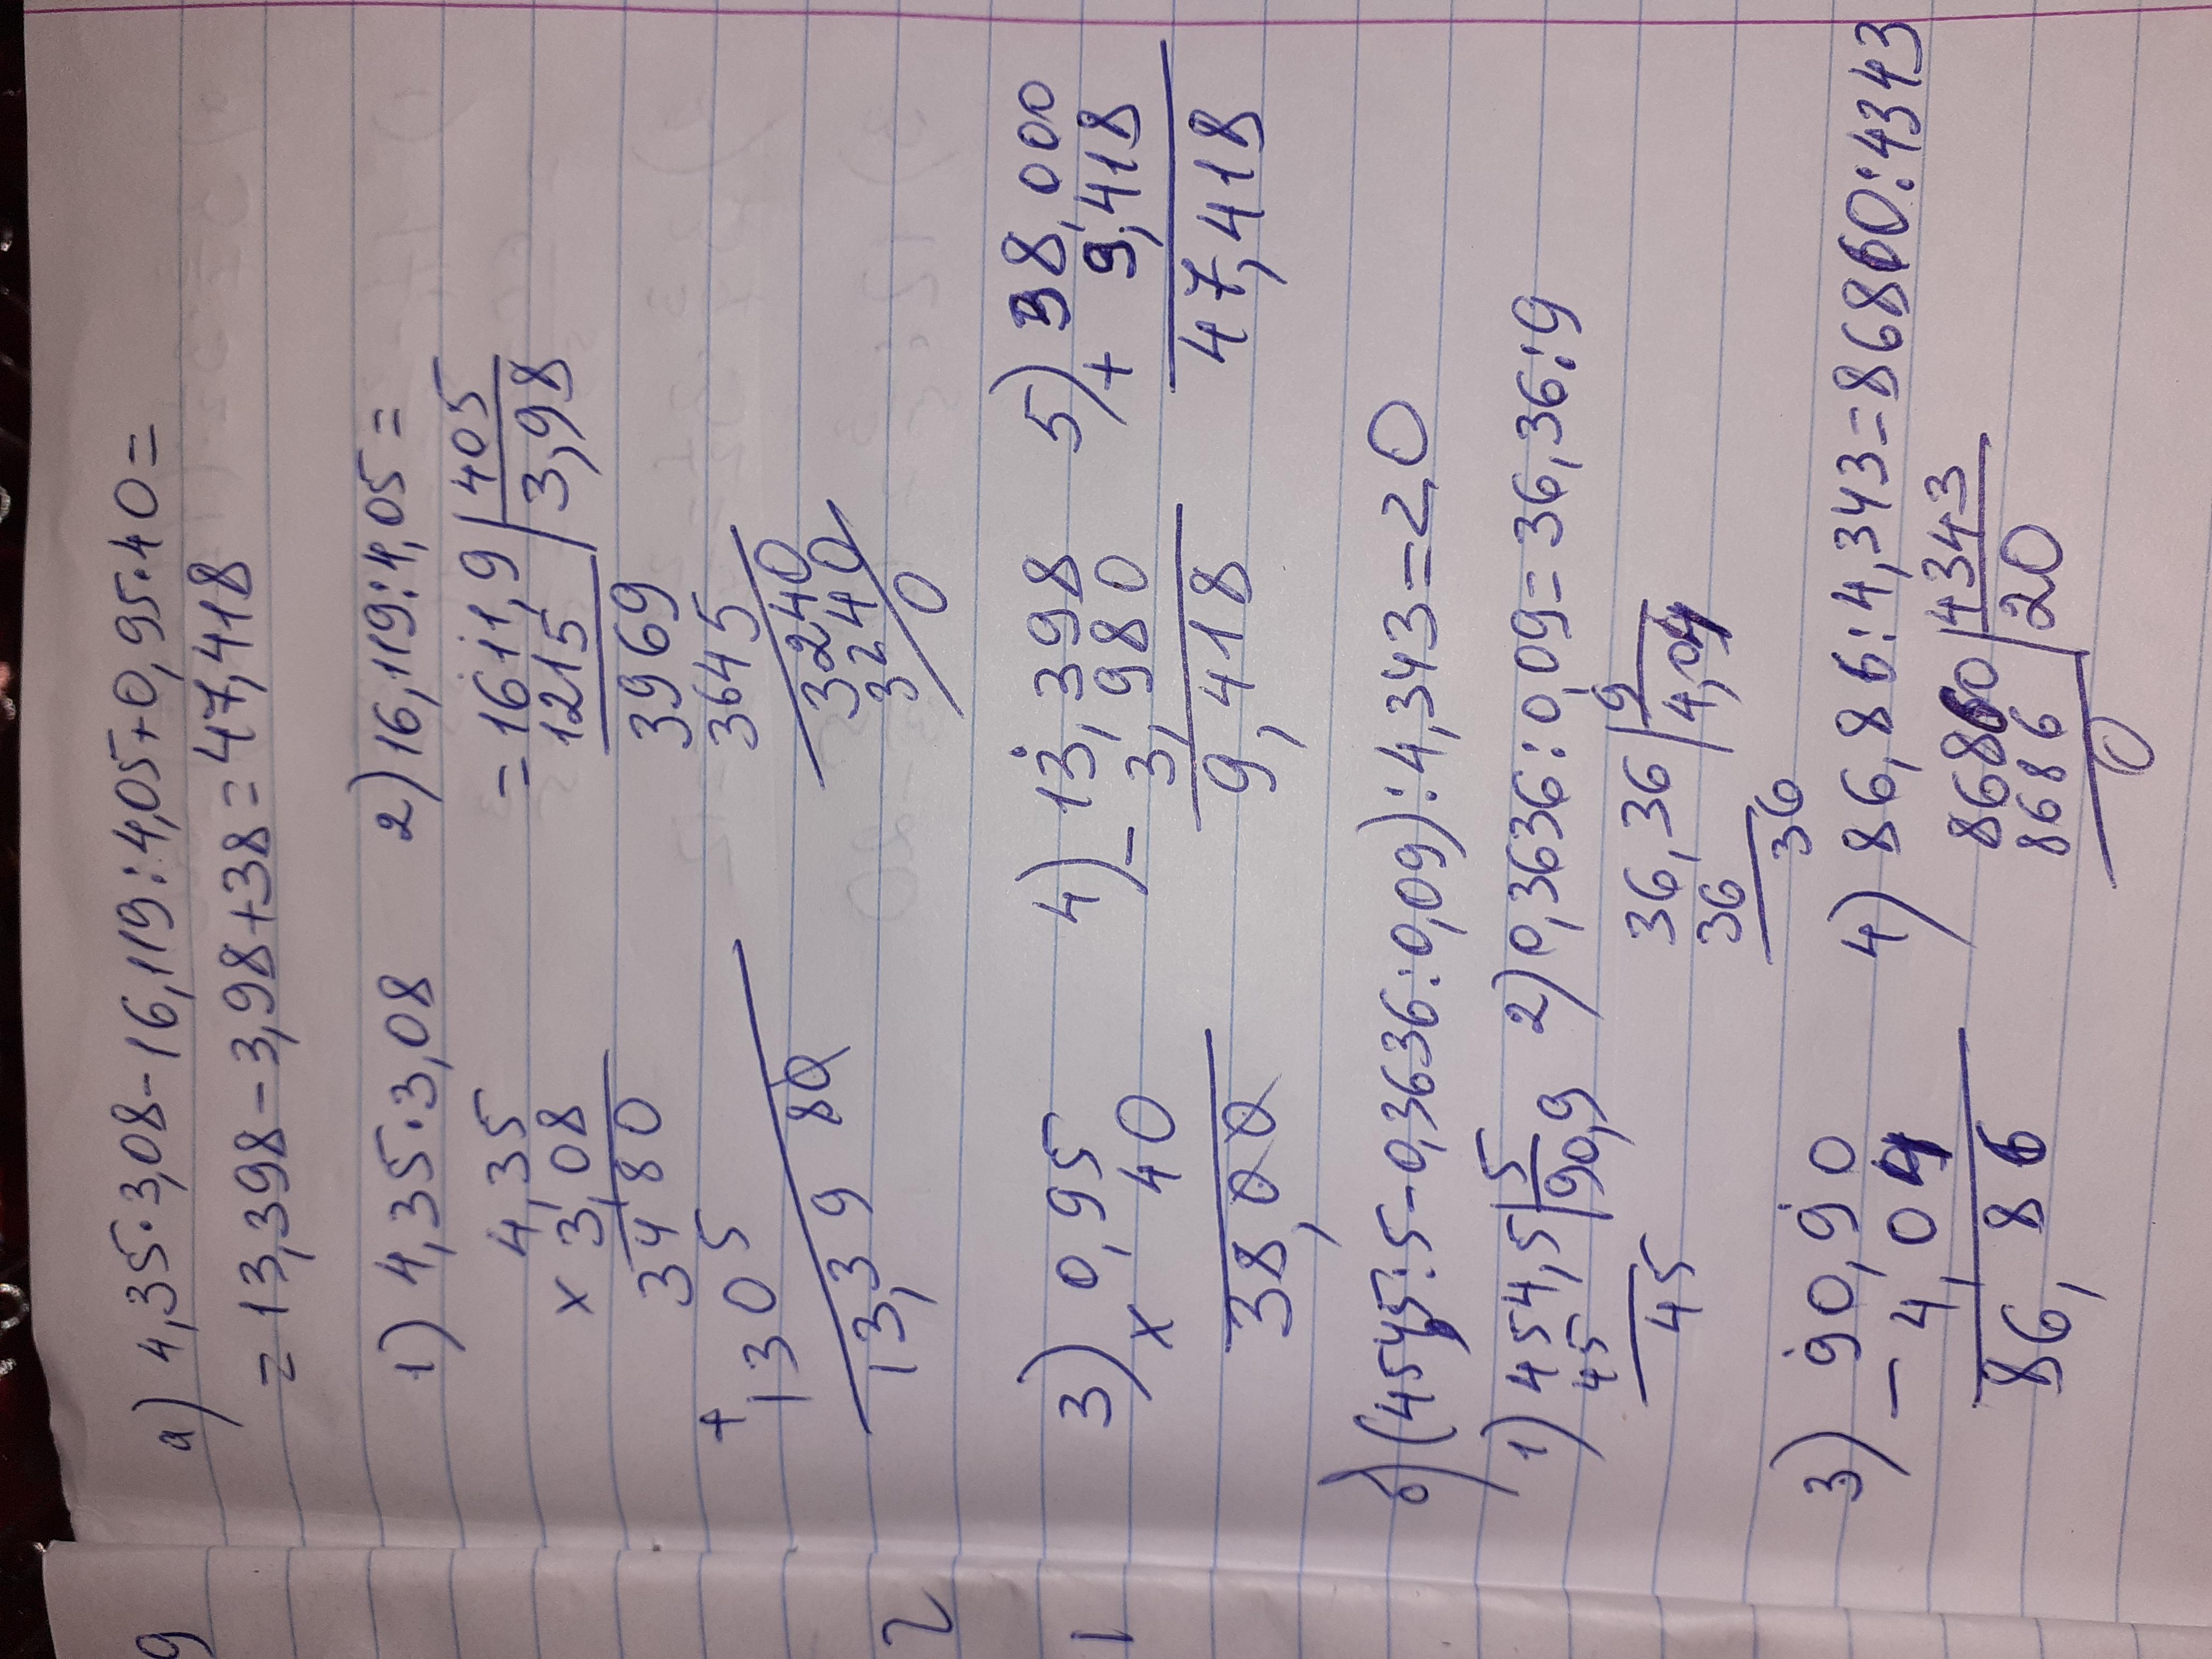 а) 4,35·3,08-16,119:4,05+0,95·40=
=13,398-3,98+38=47,418
1) 4,35·3,08
4,35
×3,08
3480
+1305
13,3980
2) 16,119:4,05=
=1611,9 | 405
1215 | 3,98
3969
3645
3240
3240
0
3) 0,95
× 40
38,00
4) 13,398
- 3,980
9,418
5) 38,000
+ 9,418
47,418
б) (454,5:5-0,3636:0,09):4,343=20
1) 454,5 | 5
45 | 90,9
45
2) 0,3636:0,09=36,36:9
36,36 | 9
36 | 4,04
36
3) 90,90
- 4,04
86,86
4) 86,86:4,343=86860:4343
86860 | 4343
8686 | 20
0
9
2
1